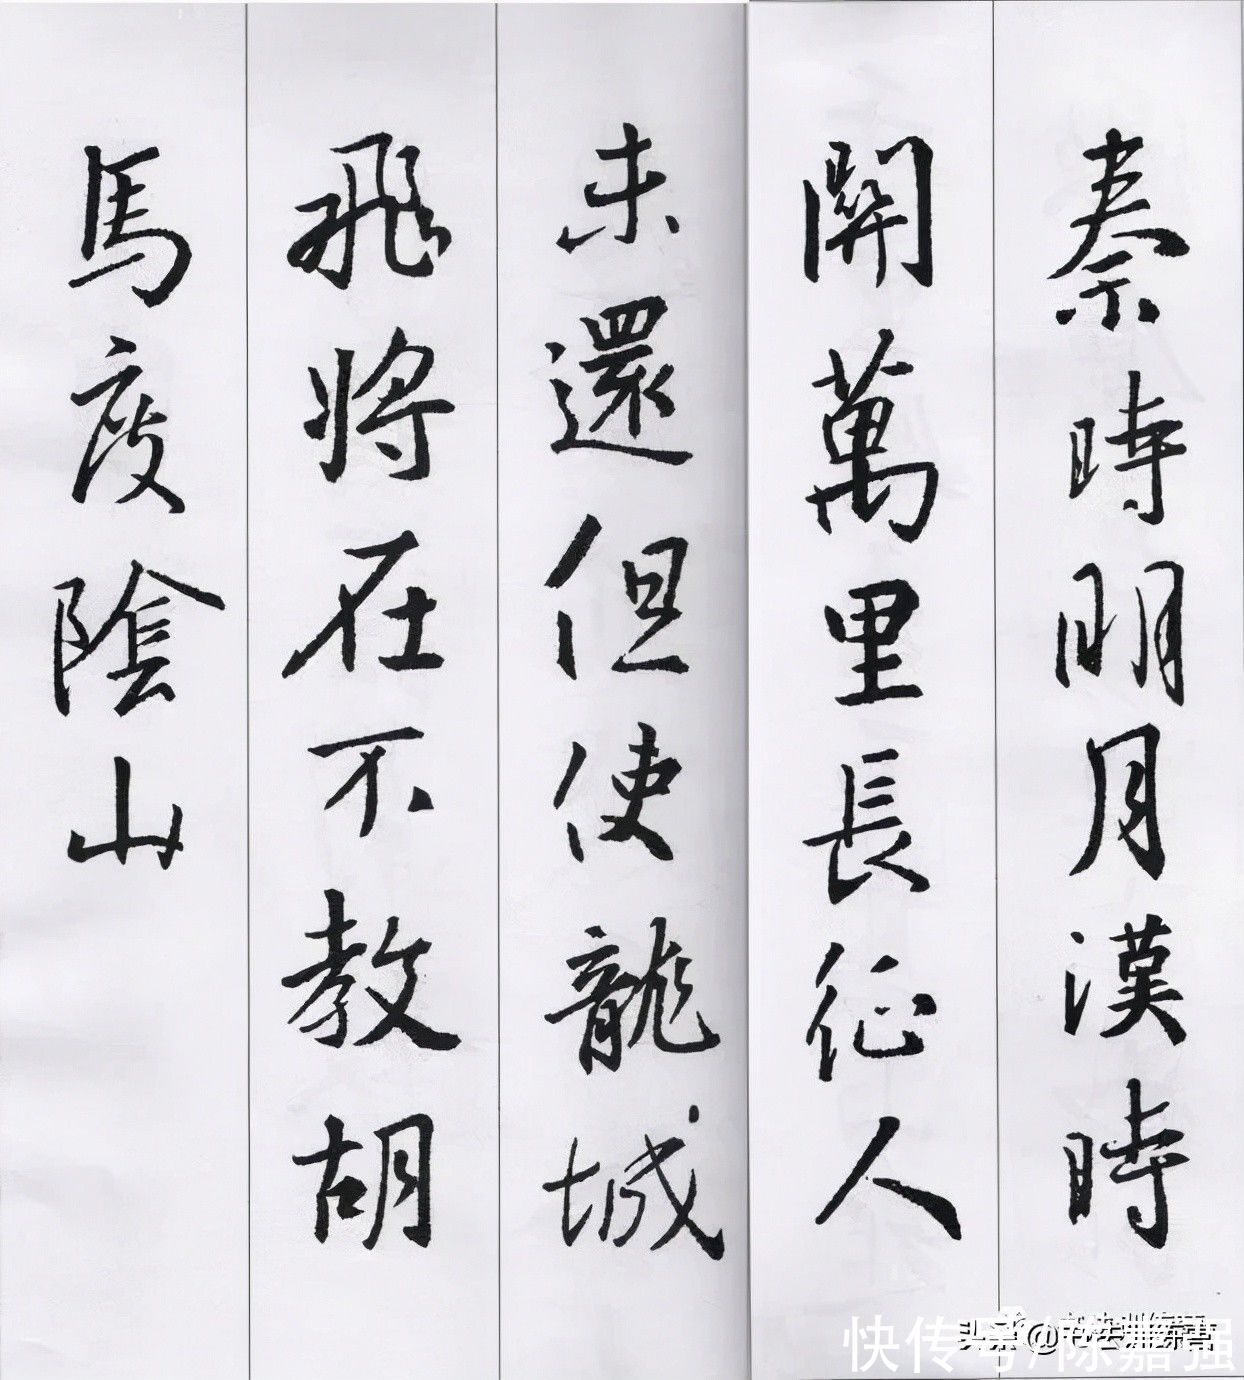 秦時明月漢時
關萬里長征人
未還但使龍城
飛将在不教胡
馬度陰山
快传号/陈嘉强